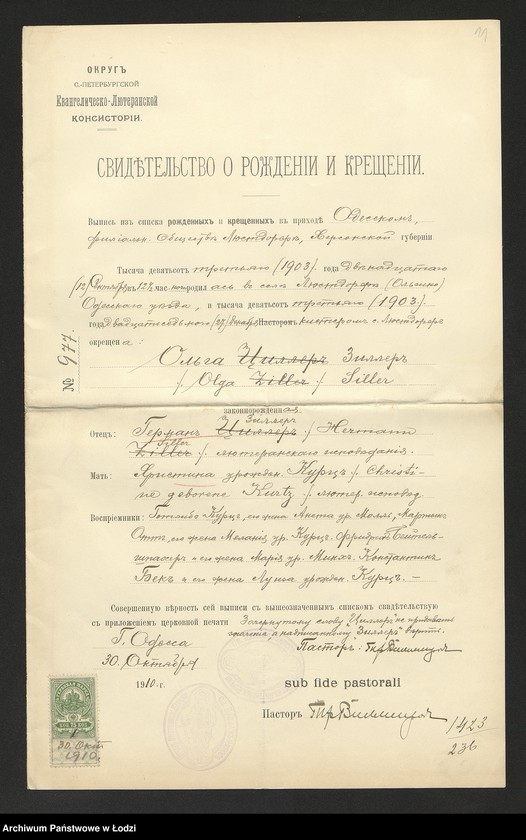 ОКРУГЪ
С.-ПЕТЕРБУРГСКОЙ
Евангелическо-Лютеранской
КОНСИСТОРІИ.
СВИДѢТЕЛЬСТВО О РОЖДЕНІИ И КРЕЩЕНІИ.
Выпись изъ списка рожденныхъ и крещенныхъ въ приходѣ Одесскомъ,
филіальн. Общества Люстдорфъ, Херсонской губерніи
Тысяча девятьсотъ третьяго (1903). года двѣнадцатаго
(12) Октября въ 12½ час. ночи родилась въ селѣ Люстдорфѣ (Ольгино)
Одесскаго уѣзда, и тысяча девятьсотъ третьяго (1903).
года двадцатьседьмого (27) Пасторомъ кистеромъ с. Люстдорфъ
окрещена:
№ 977.
Ольга Циллеръ Зиллеръ
/. Olga Ziller ./ Siller
законнорожденная
Зиллеръ
Отецъ: Германъ Циллеръ ./ Hermann
Siller
Ziller ./ лютеранскаго исповѣданія.
Мать: Христина урожден. Курцъ ./ Christi-
ne geborene Kurtz ./ лютер. исповѣд.
Воспріемники: Готлибъ Курцъ, его жена Анета ур. Моллъ, Мартинъ
Оттъ, его жена Меланія ур. Курцъ. Фридрихъ Бейтель-
шпахеръ и его жена Марія ур. Михъ. Константинъ
Бекъ и его жена Луиза урожден. Курцъ. —
Совершенную вѣрность сей выписи съ вышеозначеннымъ спискомъ свидѣтельствую
съ приложеніемъ церковной печати Зачеркнутому слову „Циллеръ" не придавать
значенія, а надписанному „Зиллеръ" вѣрить.
Г. Одесса
Пасторъ:
30 Октября
1910 г.
sub fide pastorali
Пасторъ
1423
236
30. Окт.
1910.
Archiwum Państwowe w Łodzi